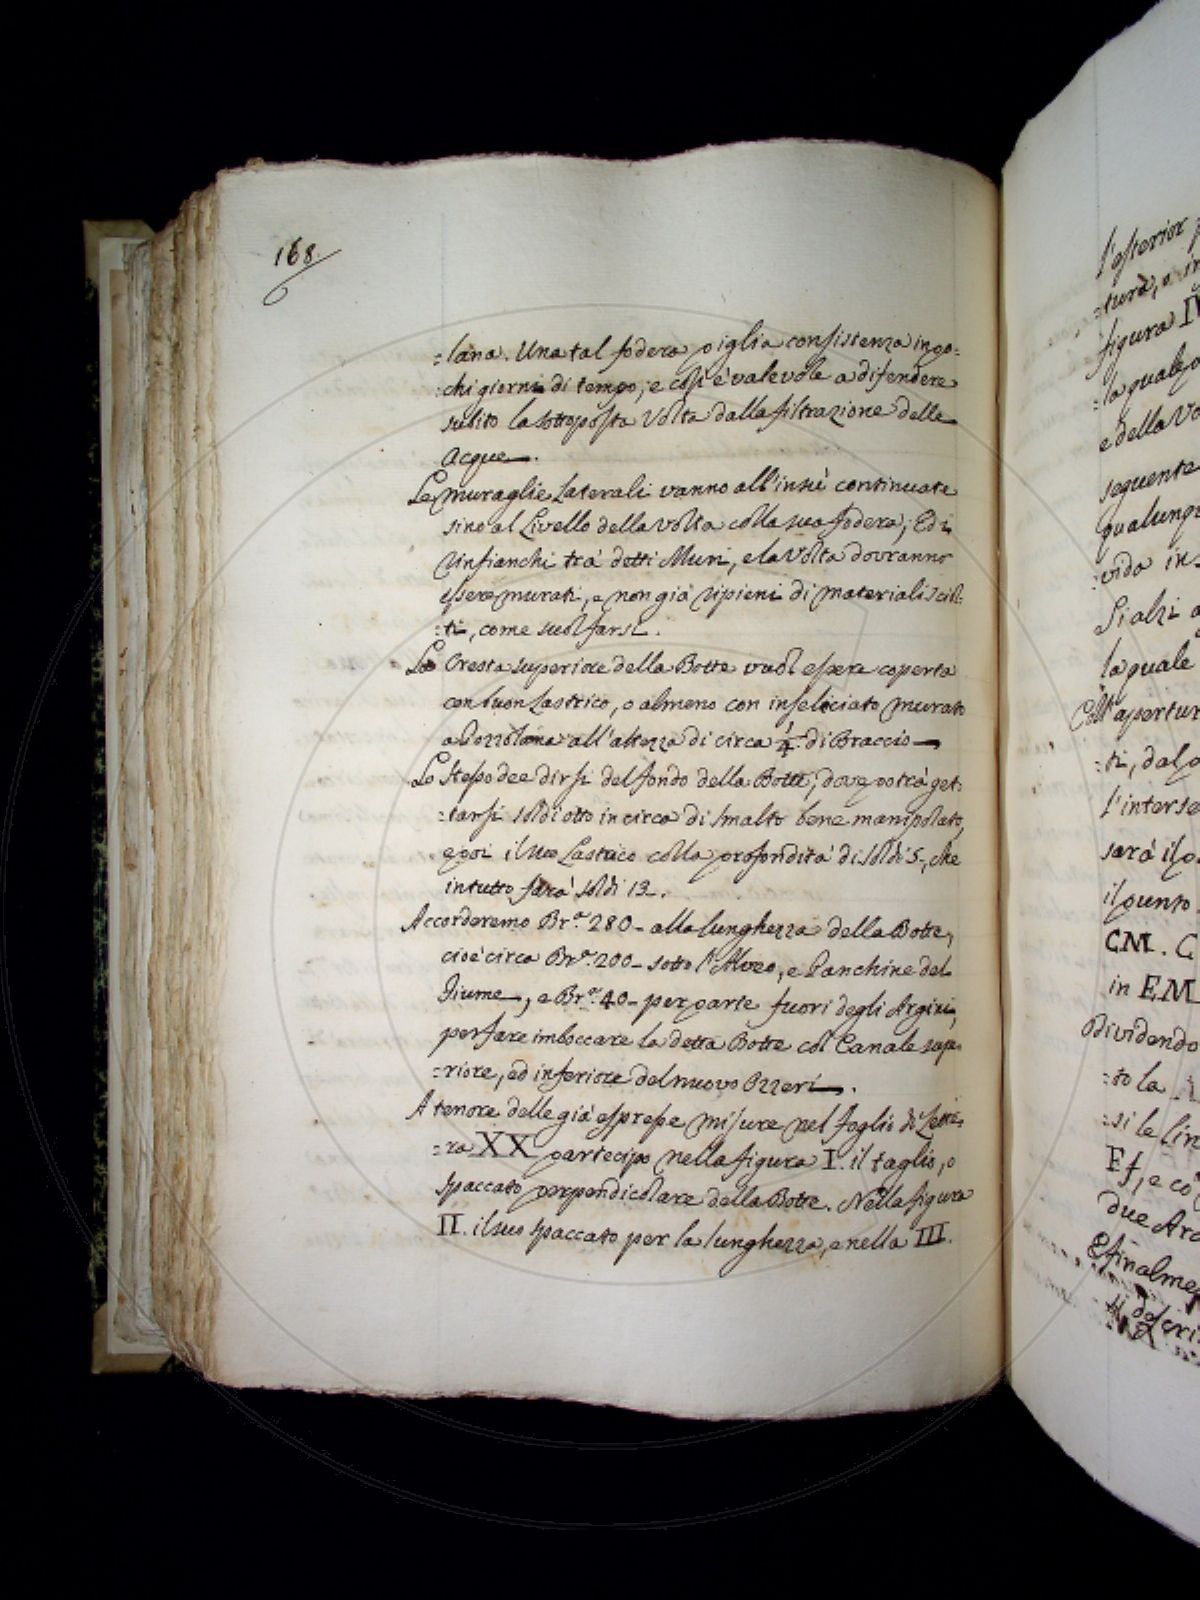 168.
:lana. Una tal fodera piglia consistenza in po:
chi giorni di tempo, e così è valevole a difendere
subito la sottoposta Volta dalla filtrazione delle
acque.
Le muraglie laterali vanno all'insù continuate
sino al Livello della Volta colla sua fodera; Ed i
rinfianchi trà detti Muri, e la Volta dovranno
essere murati, e non già ripieni di materiali sciol:
:ti, come suol farsi.
La Cresta superiore della Botte vuol essere coperta
con buon Lastrico, o almeno con inseliciato murato
a Pozzolana all'altezza di circa 1/4 di Braccio
Lo stesso dee dirsi del fondo della Botte, dove potrà get:
:tarsi soldi otto in circa di smalto bene manipolato,
e poi il suo Lastrico colla profondità di soldi 5, che
in tutto sarà soldi 13.
Accorderemo Br.ª 280 alla lunghezza della Botte,
cioè circa Br.ª 200 sotto l'Alveo, e Panchine del
Fiume, e Br.ª 40 per parte fuori degli Argini,
per fare imboccare la detta Botte col Canale supe:
:riore, ed inferiore del nuovo Ozzeri.
A tenore delle già espresse misure nel foglio di Lette:
:ra XX partecipo nella figura I. il taglio, o
spaccato perpendicolare della Botte. Nella figura
II. il suo spaccato per la lunghezza, e nella III.
l'esterior
:tura, o in
figura IV
:la quale
e della Vo
seguente
qualunqu
:vido in
Si alzi a
la quale
Coll'apertur
:ti, dal
l'interse
sarà il p
il punto
CM. C
in EM
Dividendo
:to la
:si le lin
Ef, e co
due Arc
E finalme